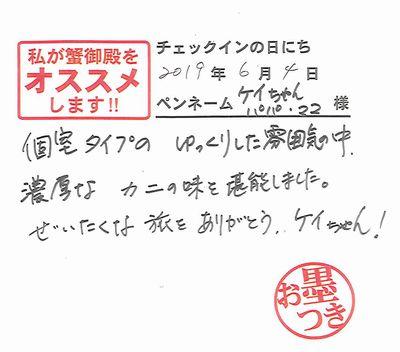 私が蟹御殿を
オススメ
します!!
チェックインの日にち
2019年6月4日
ペンネーム ケイちゃん
パパ・22 様
個室タイプの ゆっくりした雰囲気の中、
濃厚な カニの味を堪能しました。
ぜいたくな 旅を ありがとう、ケイちゃん!
お墨
つき